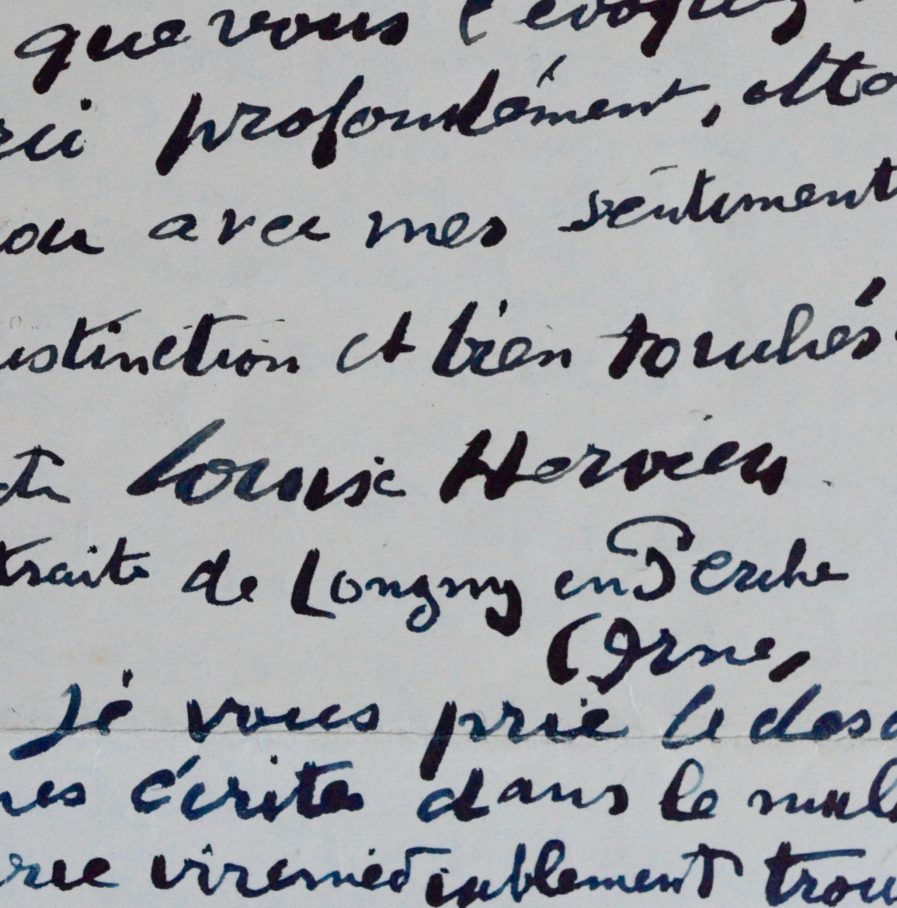 que vous l'évoquez
rci profondément, atta
avec mes sentiments
istinction et bien touchés
Louise Hervieu
traite de Longny en Perche
(Orne)
Je vous prie le des
nes écrites dans le mal
irremédiablement trou